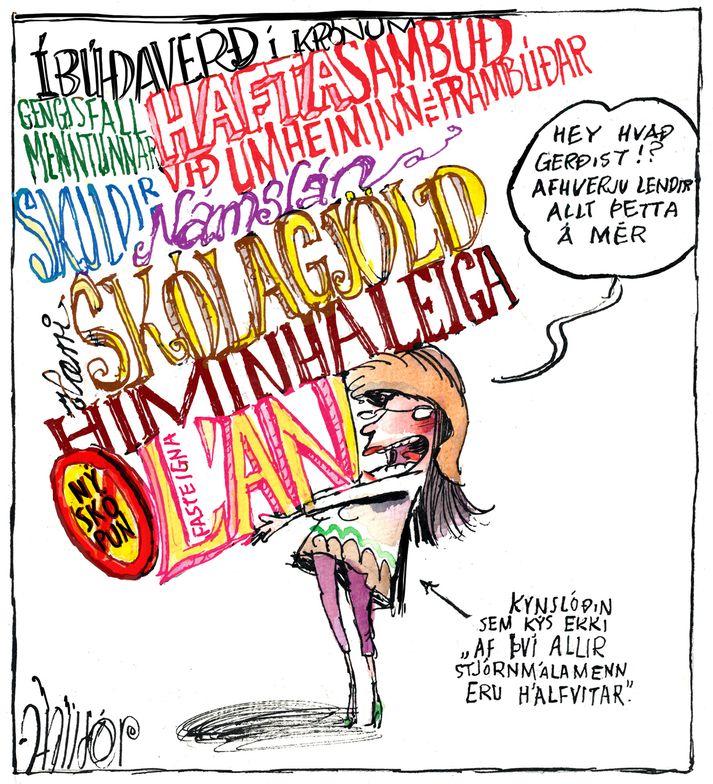 ÍBÚÐAVERÐ Í KRÓNUM
GENGISFALL
MENNTUNNAR
HAFTASAMBÚÐ
VIÐ UMHEIMINN TIL FRAMBÚÐAR
SKULDIR
Námslán
SKÓLAGJÖLD
HIMINHÁ LEIGA
NÝ
SKÖ
PUN
FASTEIGNA
LÁN
HEY HVAÐ
GERÐIST!?
AFHVERJU LENDIR
ALLT ÞETTA
Á MÉR
KYNSLÓÐIN
SEM KÝS EKKI
„AF ÞVÍ ALLIR
STJÓRNMÁLAMENN
ERU HÁLFVITAR”.